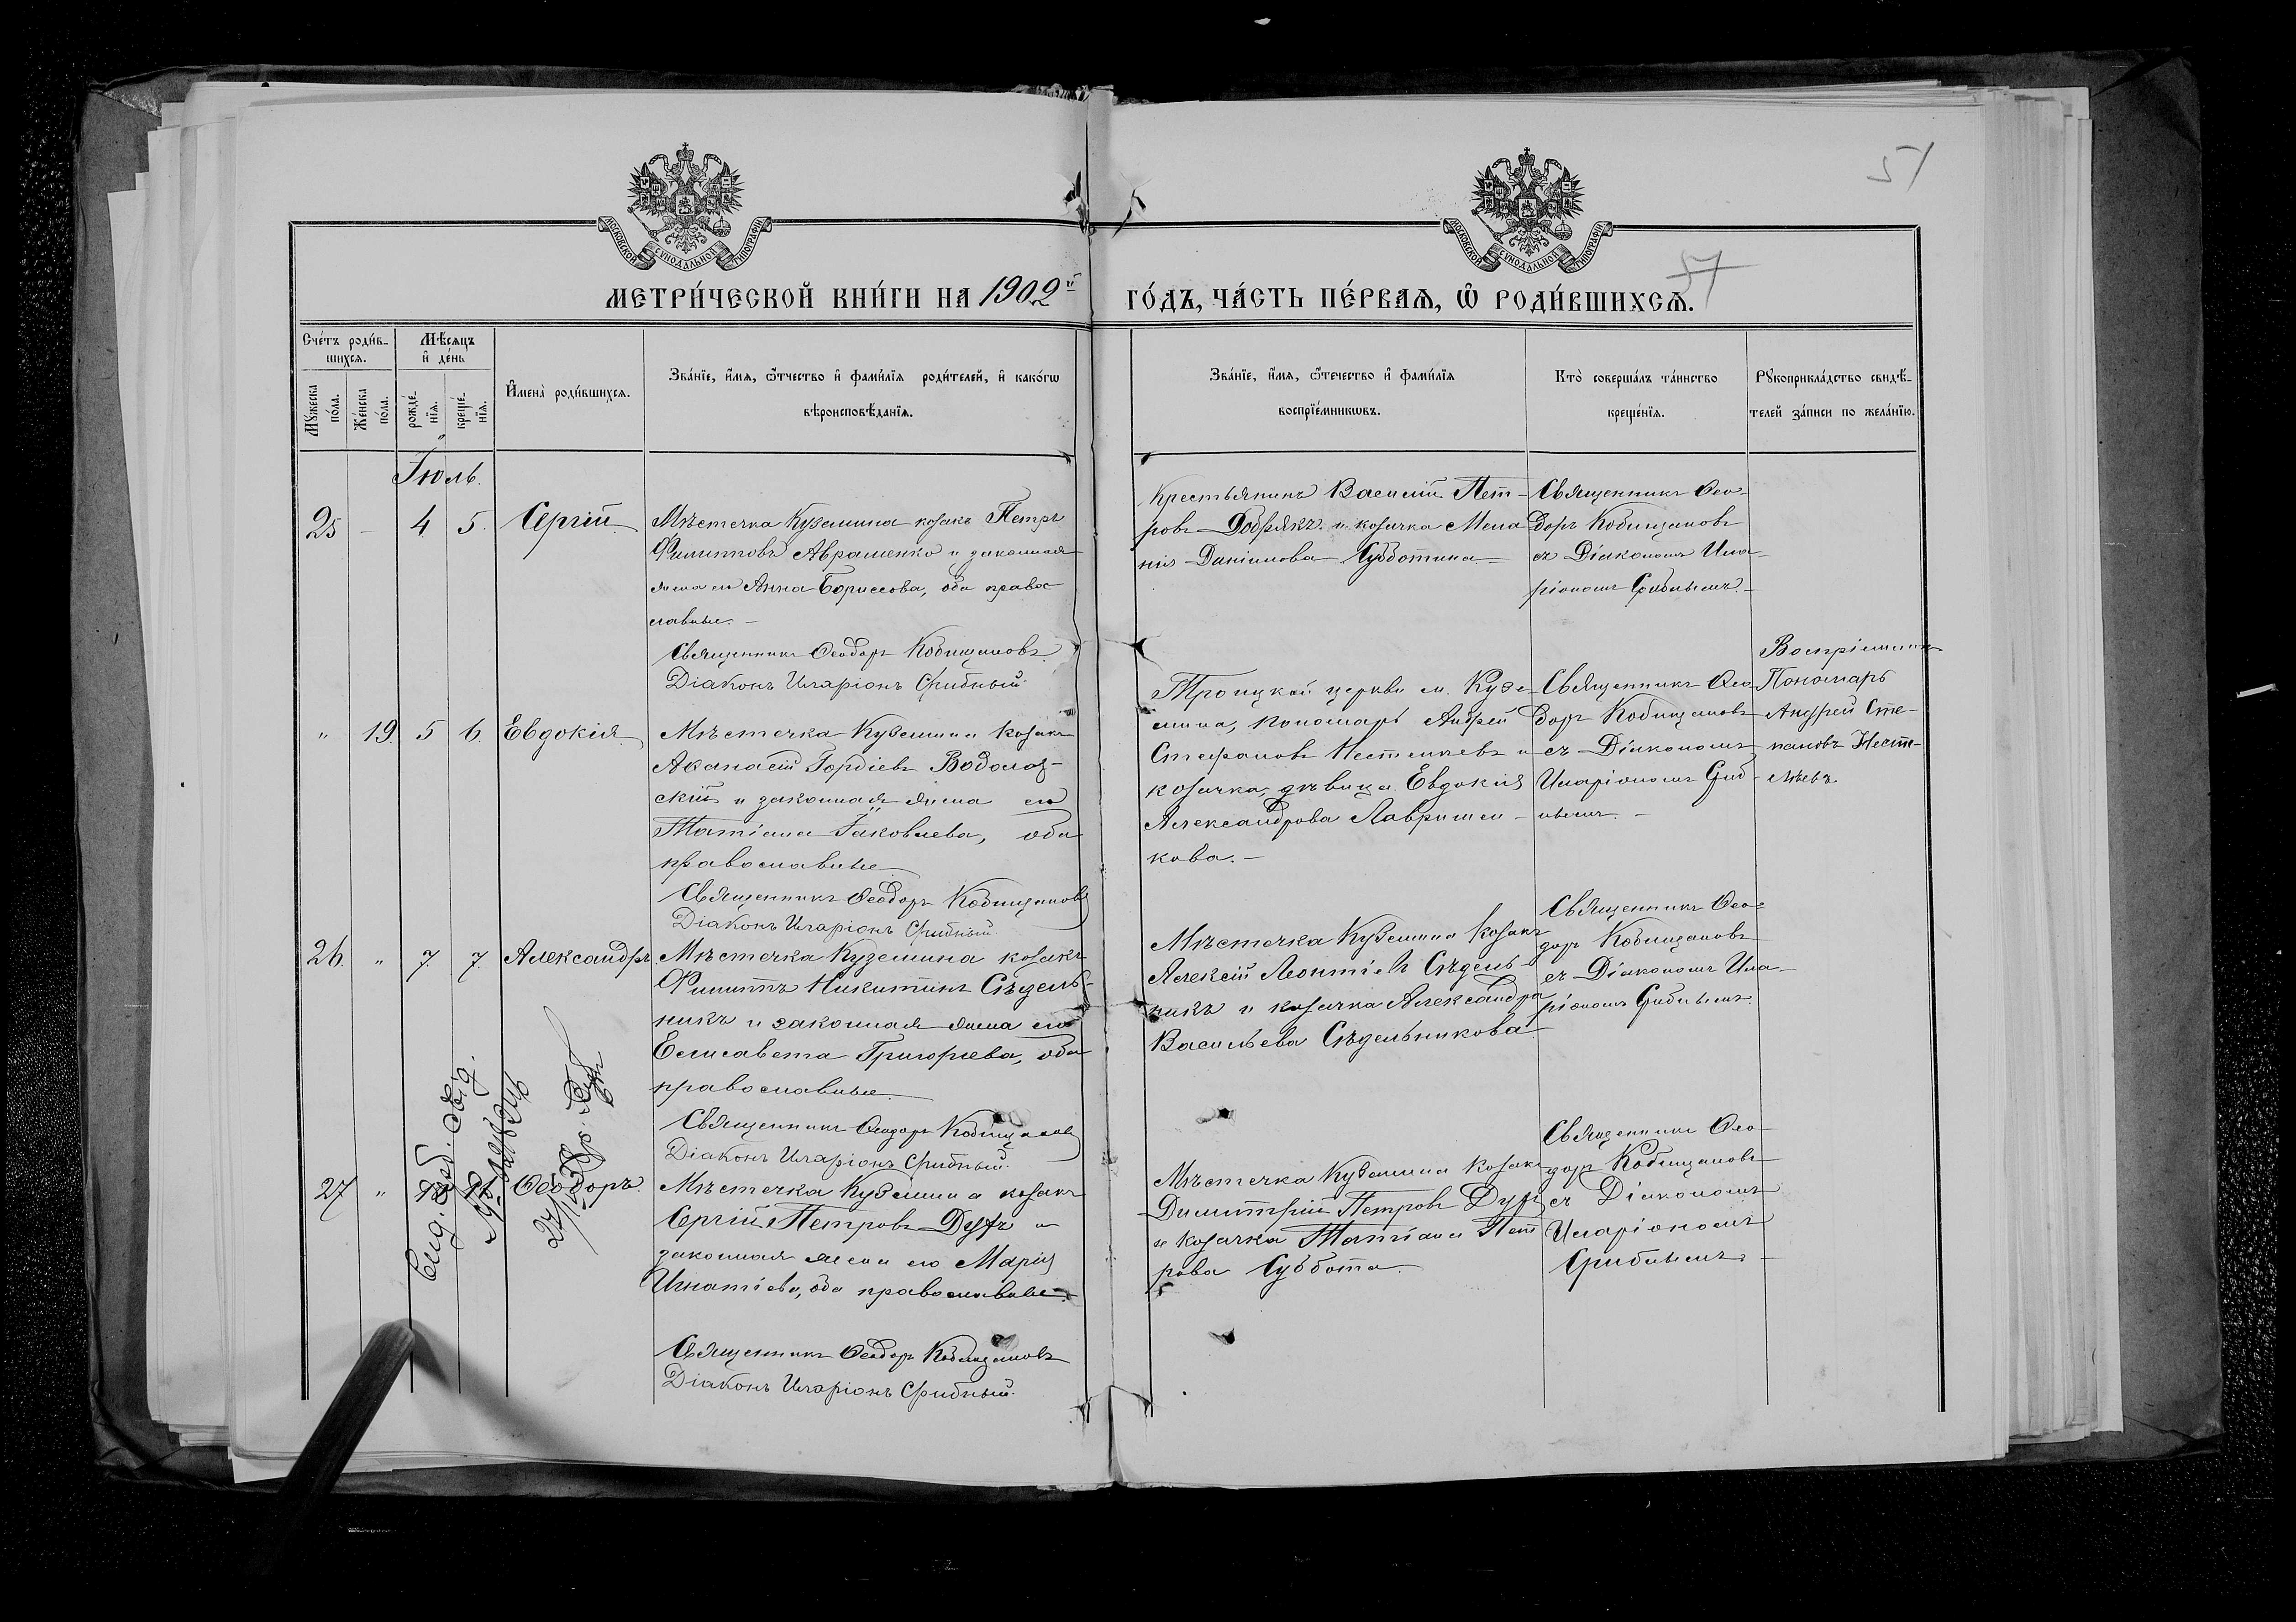 51
57
МОСКОВСКОЙ СѴНОДАЛЬНОЙ ТИПОГРАФІИ
МОСКОВСКОЙ СѴНОДАЛЬНОЙ ТИПОГРАФІИ
МЕТРИ́ЧЕСКОЙ КНИ́ГИ НА 1902й
ГО́ДЪ, ЧА́СТЬ ПЕ́РВАѦ, Ѿ РОДИ́ВШИХСѦ.
Сче́тъ роди́в-
шихсѧ.
Мꙋ́жеска
по́ла.
Же́нска
по́ла.
Мѣ́сѧцъ
и҆ де́нь
рожде́-
нїѧ.
креще́-
нїѧ.
И҆мена̀ роди́вшихсѧ.
Зва́нїе, и҆́мѧ, ѻ҆́тчество и҆ фами́лїѧ роди́телей, и҆ како́гѡ
вѣроисповѣ́данїѧ.
Зва́нїе, и҆́мѧ, ѻ҆те́чество и҆ фами́лїѧ
воспрїе́мникѡвъ.
Кто̀ соверша́лъ та́инство
креще́нїѧ.
Рꙋкоприкла́дство свидѣ́-
телей за́писи по жела́нїю.
Іюль.
25 - 4 5. Сергій
Мѣстечка Куземина козакъ Петръ
Филипповъ Авраменко и законная
жена его Анна Борисова, оба правос
лавные. -
Священникъ Ѳеодоръ Кобищановъ
Діаконъ Иларіонъ Срибный.
Крестьянинъ Василій Пет-
ровъ Добрякъ и козачка Мела
нія Даніилова Субботина
Священникъ Ѳео-
доръ Кобищановъ
съ Діакономъ Ила-
ріономъ Срибнымъ. -
" 19. 5 6. Евдокія.
Мѣстечка Куземина козакъ
Аѳанасій Гордіевъ Водолаз-
скій и законная жена его
Татіана Іаковлева, оба
православные
Священникъ Ѳеодоръ Кобищановъ
Діаконъ Иларіонъ Срибный.
Троицкой церкви м. Кузе-
мина, пономарь Андрей
Стефановъ и
козачка, дѣвица Евдокія
Александрова
кова. -
Священникъ Ѳео-
доръ Кобищановъ
съ Діакономъ
Иларіономъ Сриб-
нымъ. -
Воспріемникъ
Пономарь
Андрей Сте-
пановъ
26. " 7. 7. Александръ.
Мѣстечка Куземина козакъ
Филиппъ Никитинъ Сѣдель-
никъ и законная жена его
Елисавета Григорьева, оба
православные.
Священникъ Ѳеодоръ Кобищановъ
Діаконъ Иларіонъ Срибный.
Мѣстечка Куземина козакъ
Алексій Леонтіевъ Сѣдель-
никъ и козачка Александра
Васильева Сѣдельникова
Священникъ Ѳео-
доръ Кобищановъ
съ Діакономъ Ила-
ріономъ Срибнымъ.
27 " Ѳеодоръ.
Мѣстечка Куземина козакъ
Сергій Петровъ и
законная жена его Марія
Игнатіева, оба православные.
Священникъ Ѳеодоръ Кобищановъ
Діаконъ Иларіонъ Срибный.
Мѣстечка Куземина козакъ
Димитрій Петровъ
и козачка Татіана Пет
рова Суббота.
Священникъ Ѳео-
доръ Кобищановъ
съ Діакономъ
Иларіономъ
Срибнымъ. -